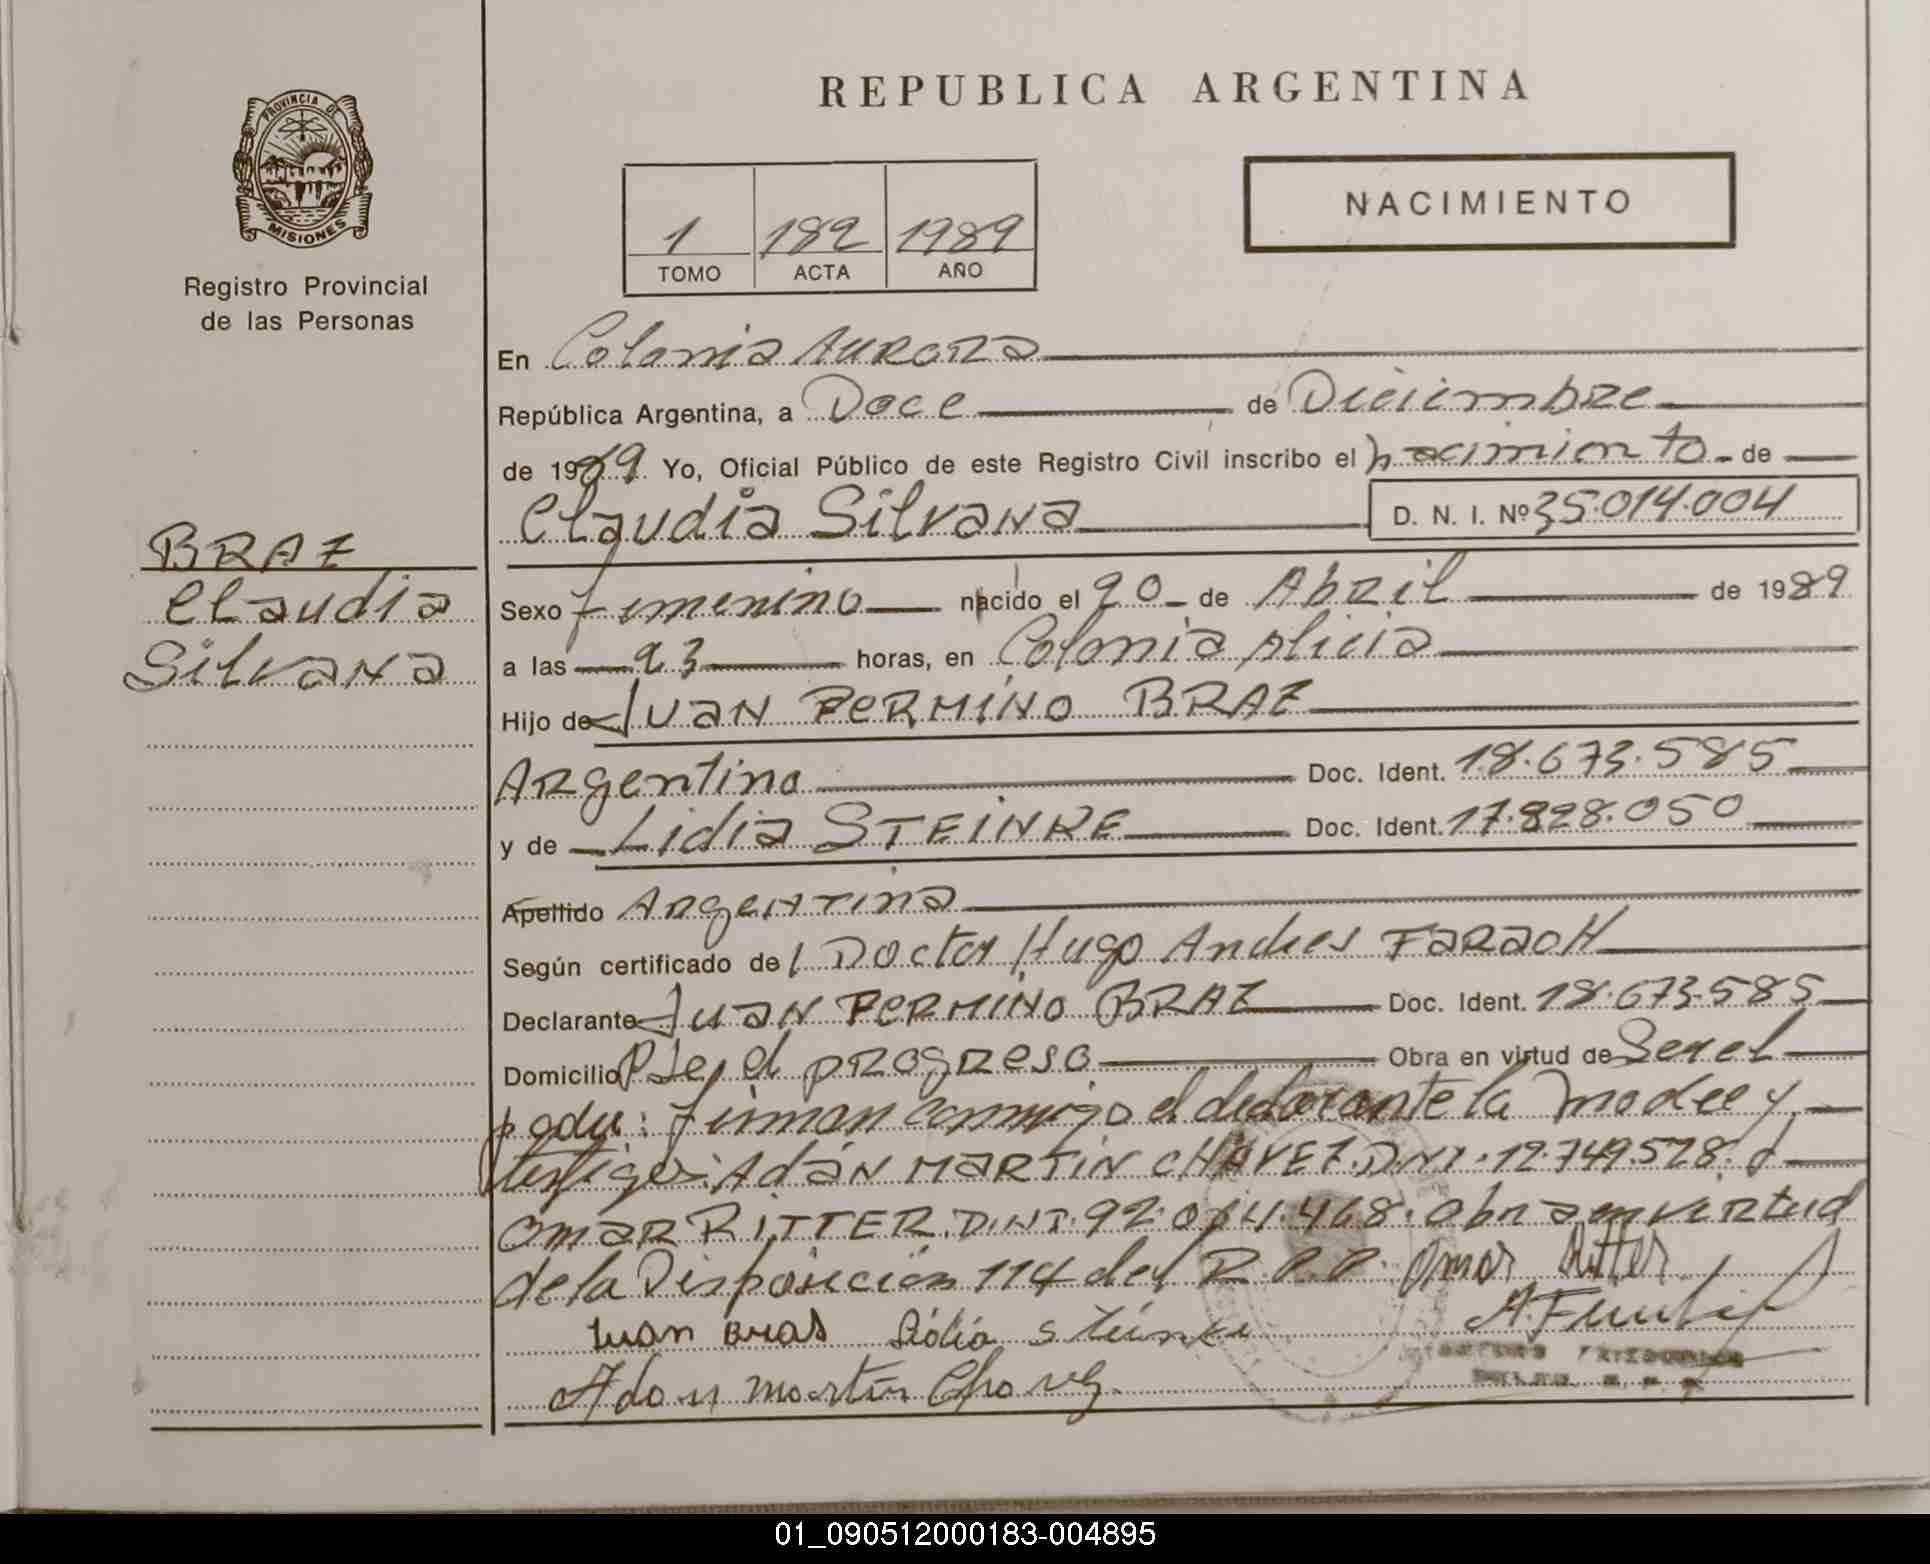 REPUBLICA ARGENTINA
PROVINCIA DE
MISIONES
Registro Provincial
de las Personas
1 182 1989
TOMO ACTA AÑO
NACIMIENTO
En Colonia Aurora
República Argentina, a Doce de Diciembre
de 1989. Yo, Oficial Público de este Registro Civil inscribo el nacimiento de
Claudia Silvana D. N. I. Nº 35.014.004
BRAZ
Claudia
Silvana
Sexo femenino nacido el 20 de Abril de 1989
a las 23 horas, en Colonia Alicia
Hijo de Juan FERMINO BRAZ
Argentino Doc. Ident. 18.673.585
y de Lidia STEINKE Doc. Ident. 17.828.050
Apellido Argentina
Según certificado del Doctor Hugo Andres FARAOH
Declarante Juan FERMINO BRAZ Doc. Ident. 18.673.585
Domicilio Pje, el progreso Obra en virtud de
firman conmigo el declarante la madre y
testigos: Adán MARTIN CHAVEZ. D.N.I. 12.749.528.
OMAR RITTER. D.N.I. 92.014.468. Obra en virtud
de la Disposición 114 del R.P.P. Omar Ritter
Juan Bras Lidia Steinke
Adan martin Chavez
01_090512000183-004895